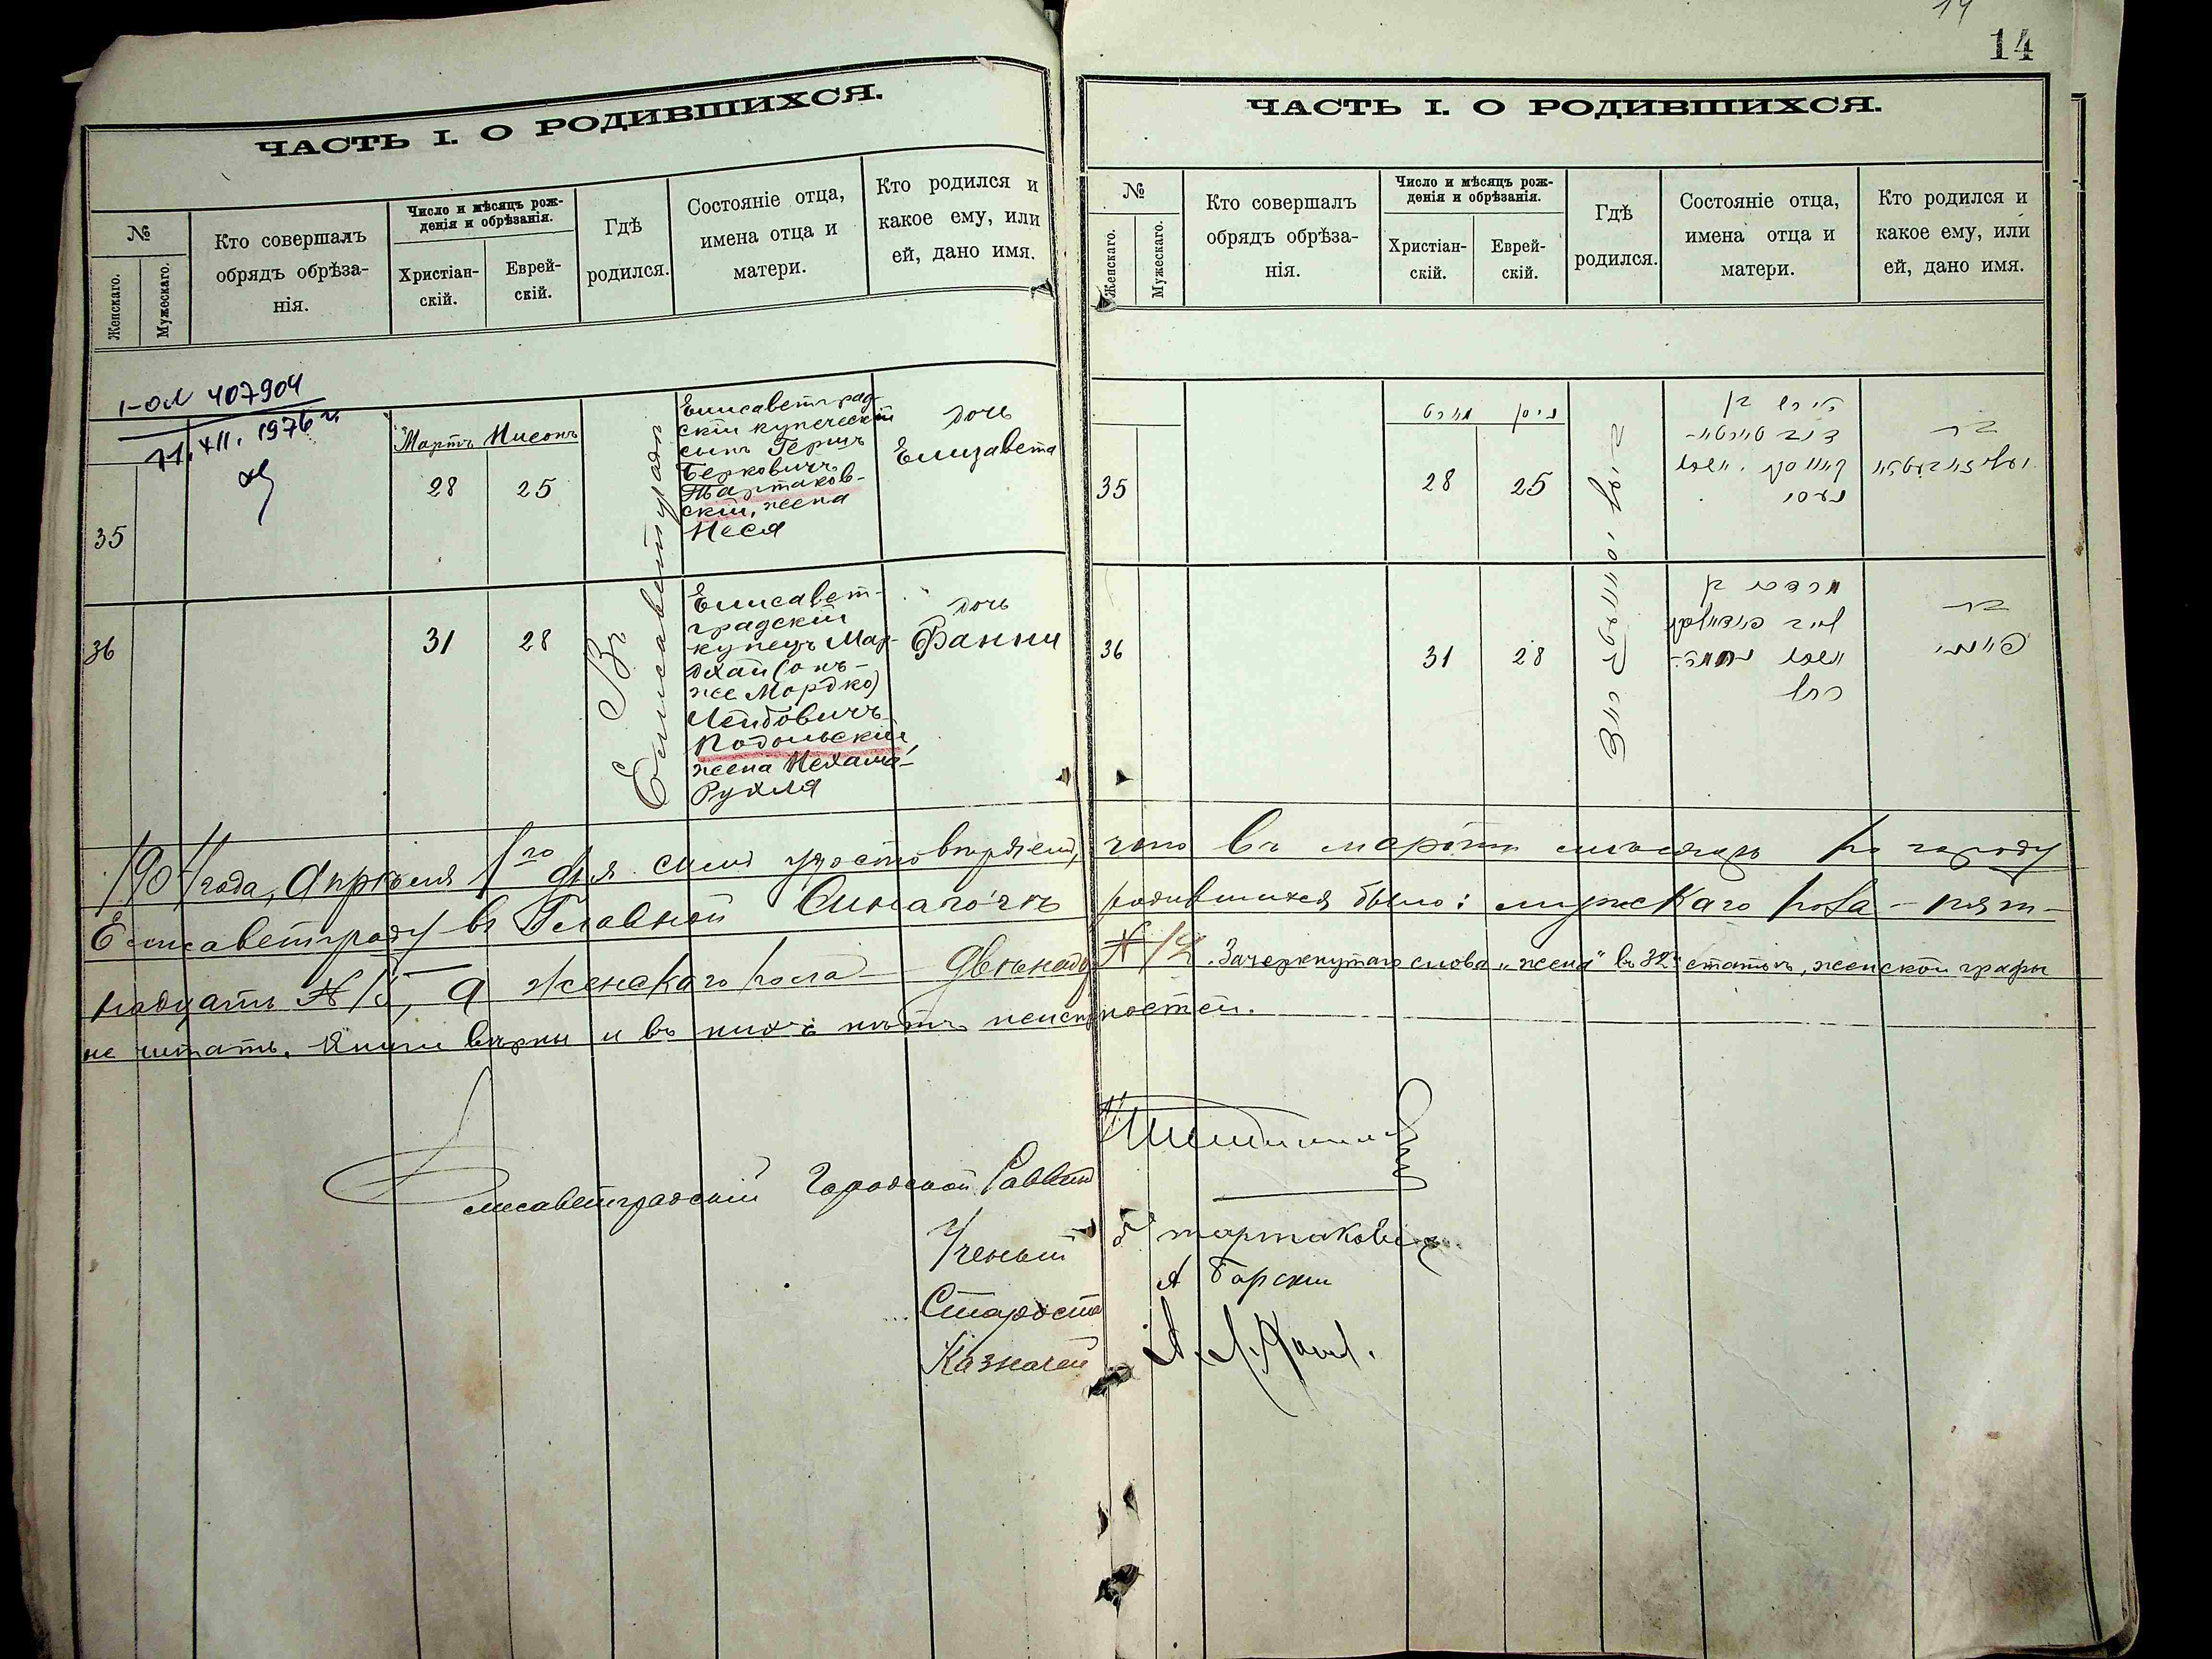 14
14
ЧАСТЬ I. О РОДИВШИХСЯ.
№
Женскаго.
Мужескаго.
Кто совершалъ
обрядъ обрѣза-
нія.
Число и мѣсяцъ рож-
денія и обрѣзанія.
Христіан-
скій.
Еврей-
скій.
Гдѣ
родился.
Состояніе отца,
имена отца и
матери.
Кто родился и
какое ему, или
ей, дано имя.
1-ОЛ 407904
11.XII.1976 г.
35
Мартъ Нисонъ
28
25
Въ
Елисаветградѣ
Елисаветград-
скій купеческій
сынъ Гершъ
Берковичъ
Тартаков-
скій, жена
Неся
дочь
Елизавета
36
31
28
Елисавет-
градскій
купецъ Мар-
дхай (онъ-
же Мордко)
Лейбовичъ
Подольскій,
жена Нехама-
Рухля
дочь
Фанни
ЧАСТЬ I. О РОДИВШИХСЯ.
№
Женскаго.
Мужескаго.
Кто совершалъ
обрядъ обрѣза-
нія.
Число и мѣсяцъ рож-
денія и обрѣзанія.
Христіан-
скій.
Еврей-
скій.
Гдѣ
родился.
Состояніе отца,
имена отца и
матери.
Кто родился и
какое ему, или
ей, дано имя.
מארט ניסן
35
28
25
בת
36
31
28
בת
פאני
1904 года, Апрѣля 1го дня симъ удостовѣряемъ, что въ мартѣ мѣсяцѣ по городу
Елисаветграду въ Главной Синагогѣ родившихся было: мужскаго пола – пят-
надцать № 15, а женскаго пола – двѣнадц. № 12. Зачеркнутаго слова „жена" въ 32й статьѣ, женской графы
не читать. Книги вѣрны и въ нихъ нѣтъ неисправностей.
Елисаветградскій Городской Раввинъ
Ученый Б Тартаковскій
Староста А Барскій
Казначей